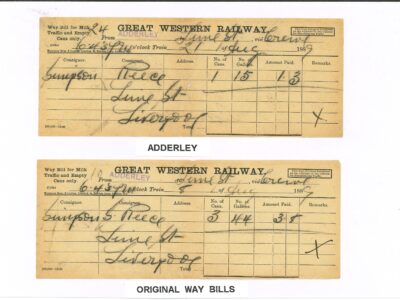 Way Bill for Milk
Traffic and Empty
Cans only.
24
GREAT WESTERN RAILWAY.
From ADDERLEY to Lime St. via Crewe
6.45 pm o'clock Train 21 Aug 1889
Consignor Consignee Address No. of Cans. No. of Gallons. Amount Paid. Remarks
Simpson Reece 1 15 1 3
Lime St
Liverpool X
Total
ADDERLEY
Way Bill for Milk
Traffic and Empty
Cans only.
GREAT WESTERN RAILWAY.
From ADDERLEY to Lime St via Crewe
6.45 pm o'clock Train 8 Aug
Consignor. Consignee. Address No. of Cans. No. of Gallons. Amount Paid. Remarks
Simpson Reece 3 44 3 8
Lime St
Liverpool X
Total
ORIGINAL WAY BILLS